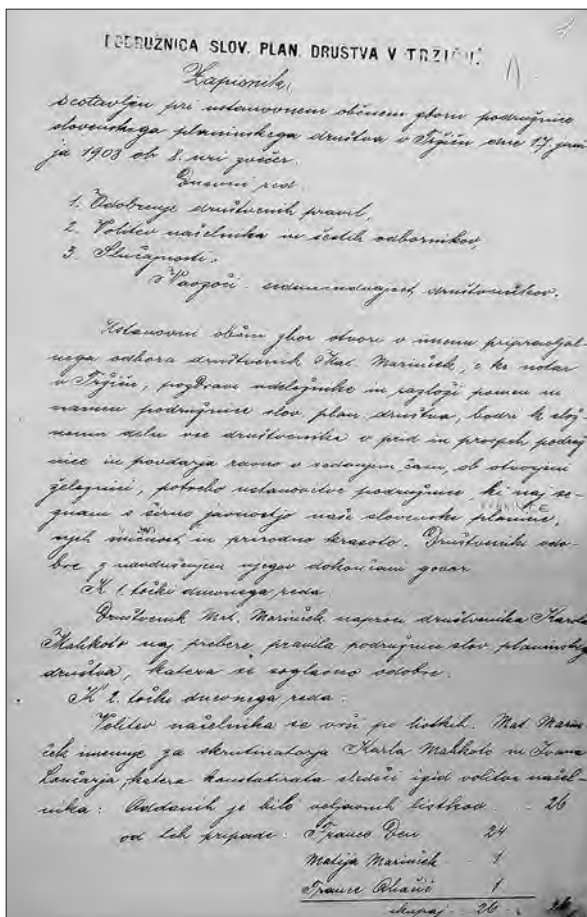 PODRUŽNICA SLOV. PLAN. DRUŠTVA V TRŽIČU
Zapisnik,
sestavljen pri ustanovnem občnem zboru podružnice
slovenskega planinskega društva v Tržiču dne 17. janu
ja 1908 ob 8. uri zvečer.
Dnevni red.
1. Odobrenje društvenih pravil,
2. Volitev načelnika in šestih odbornikov,
3. Slučajnosti.
Navzoči: društvenikov.
Ustanovni občni zbor otvori v imenu pripravljal-
nega odbora društvenik Mat. Marinček, c. kr. notar
v Tržiču, pozdravi udeležnike in razloži pomen in
namen podružnice slov. plan. društva, bodri k slož-
nemu delu vse društvenike v prid in prospeh podruž
nice in povdarja ravno v sedanjem času, ob otvoritvi
železnice, potrebo ustanovitve podružnice, ki naj se-
znani s širno javnostjo naše slovenske planine,
njih mičnost in prirodno krasoto. Društveniki odo-
bre z navdušenjem njegov dokončani govor.
K 1. točki dnevnega reda:
Društvenik Mat. Marinček naprosi društvenika Karla
Mahkoto naj prebere pravila podružnice slov. planinskega
društva, katera se soglasno odobre.
K 2. točki dnevnega reda:
Volitev načelnika se vrši po listkih. Mat. Marin
ček imenuje za skrutinatorja Karla Mahkoto in Ivana
Lončarja, katera konstatirata sledeči izid volitve načel-
nika: Oddanih je bilo veljavnih listkov - 26
od teh pripade: Franco Den 24
Matija Marinček - 1
France Ahačič 1
skupaj - 26 -